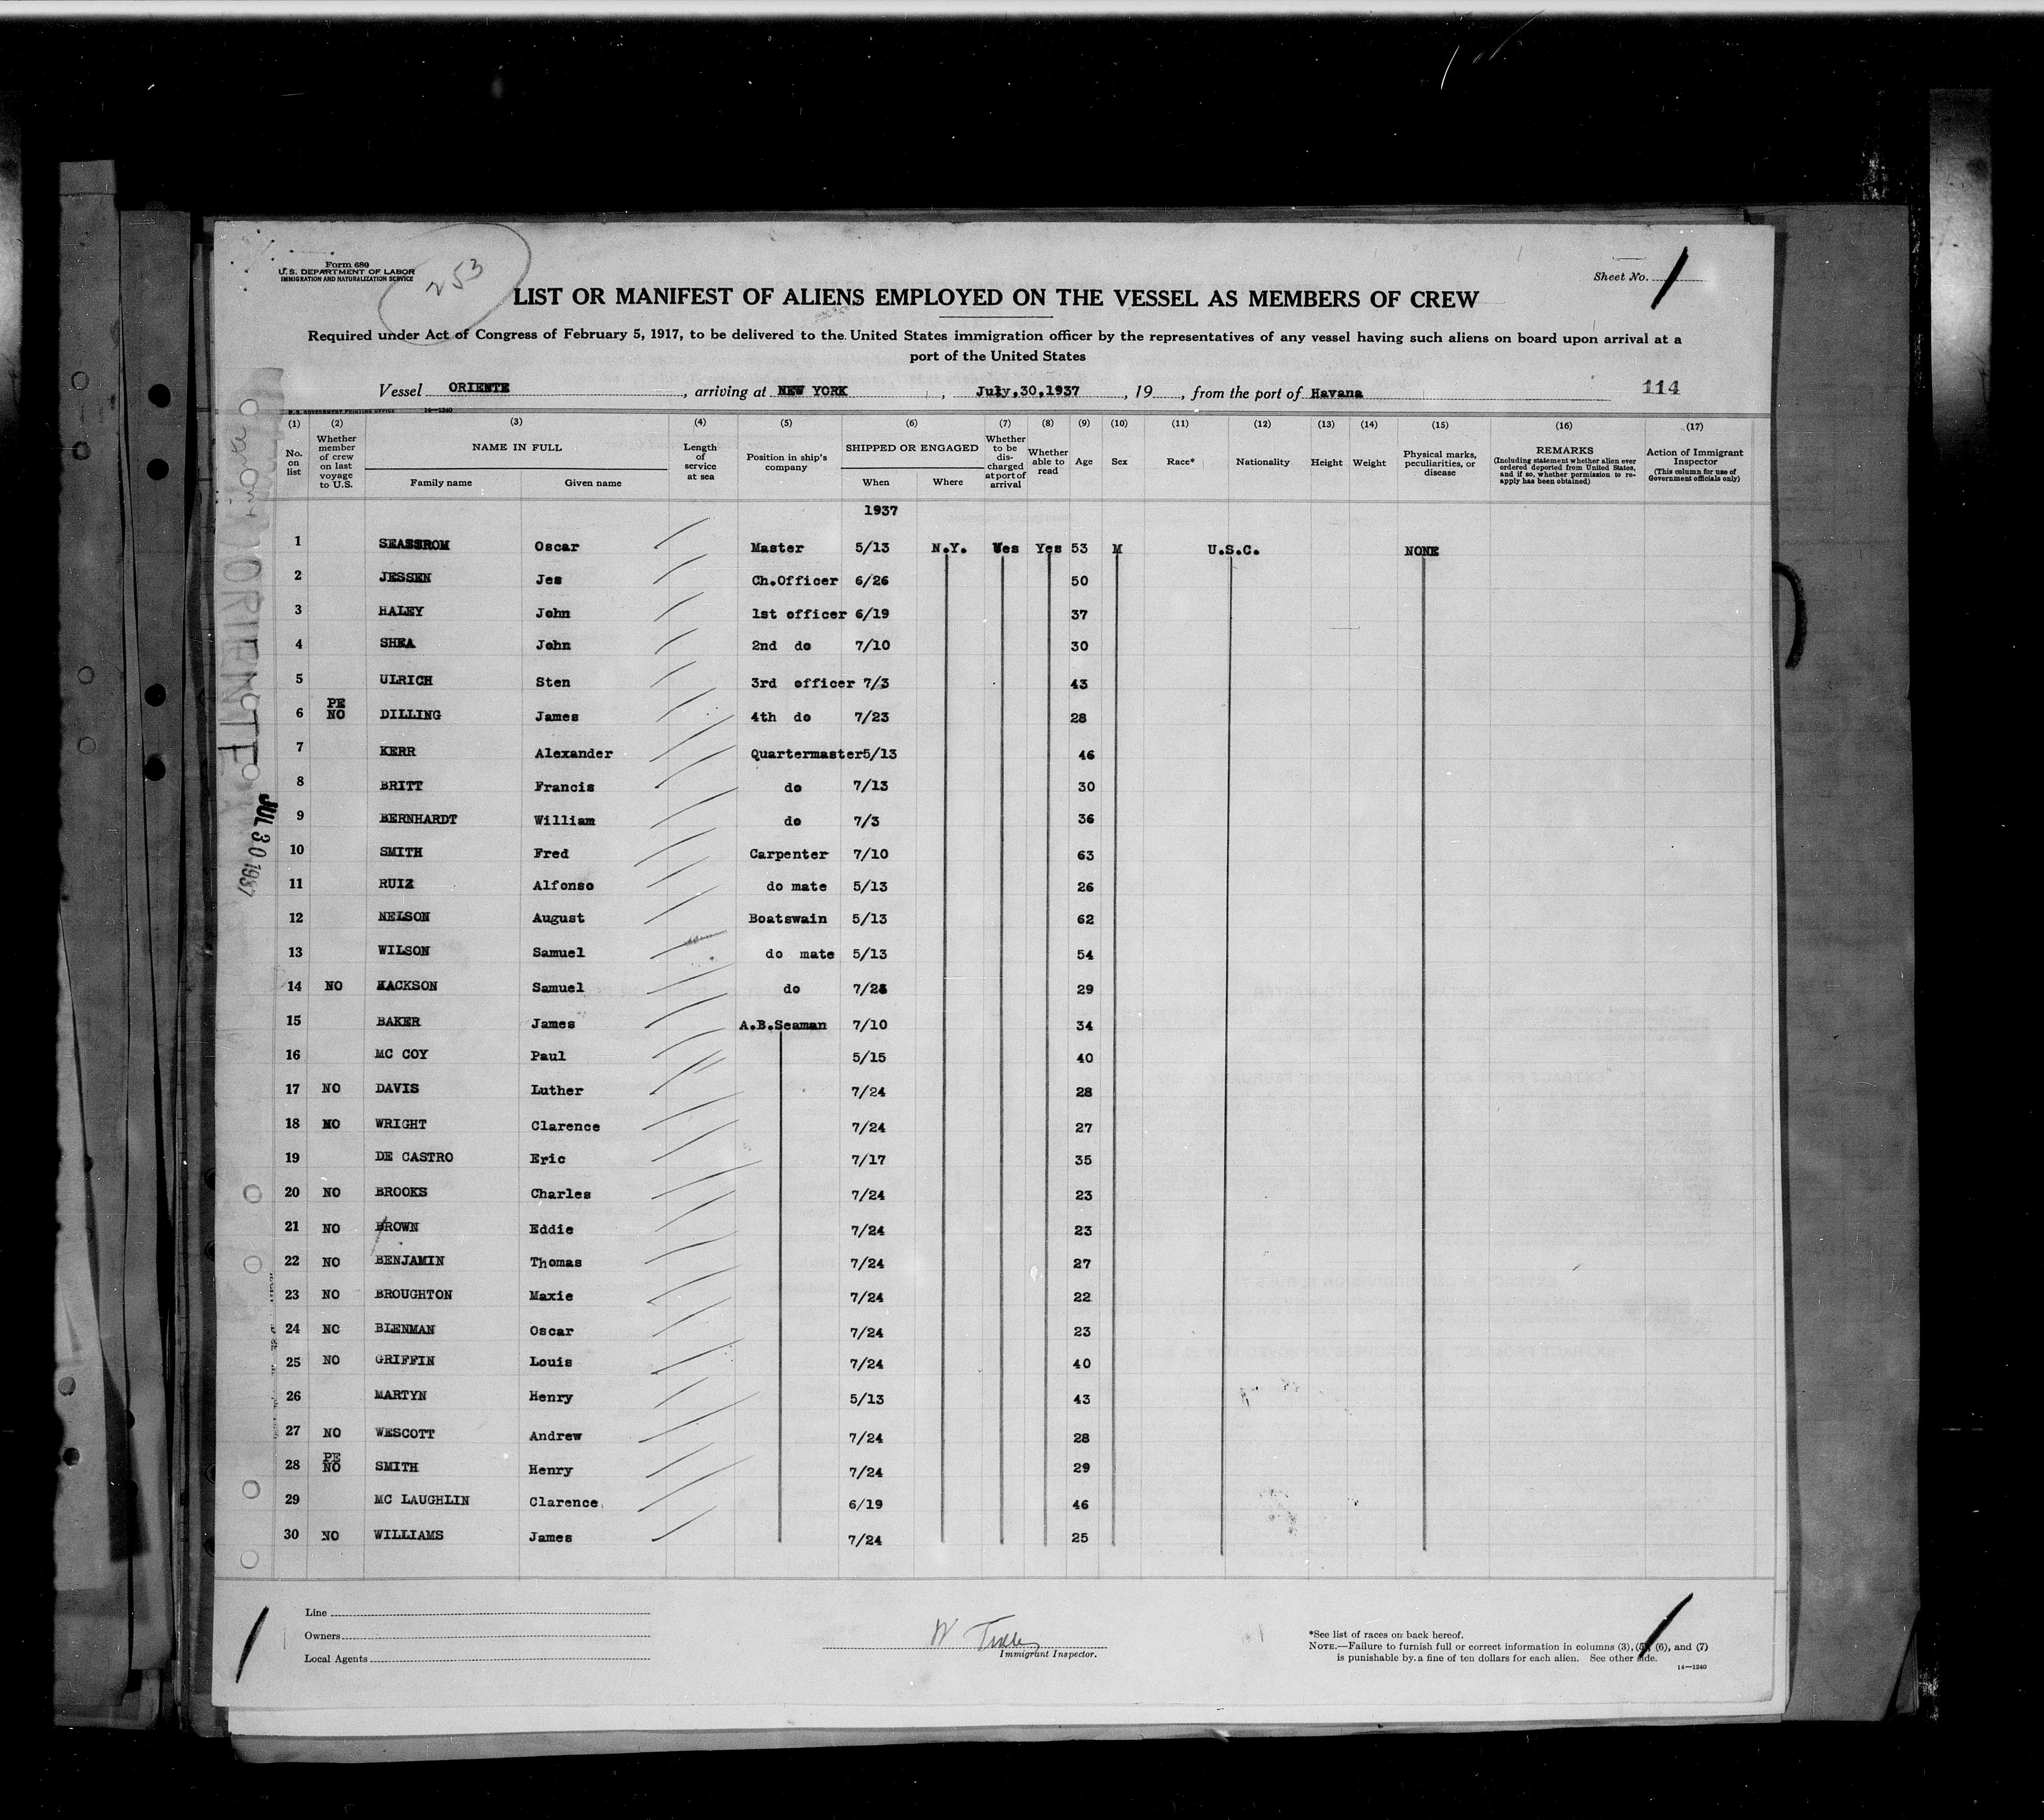 Form 680
U.S. DEPARTMENT OF LABOR
IMMIGRATION AND NATURALIZATION SERVICE
253
Sheet No. 1
LIST OR MANIFEST OF ALIENS EMPLOYED ON THE VESSEL AS MEMBERS OF CREW
Required under Act of Congress of February 5, 1917, to be delivered to the United States immigration officer by the representatives of any vessel having such aliens on board upon arrival at a
port of the United States
Vessel ORIENTE, arriving at NEW YORK, July,30,1937, 19, from the port of Havana 114
U.S. GOVERNMENT PRINTING OFFICE 14—1240
(1) (2) (3) (4) (5) (6) (7) (8) (9) (10) (11) (12) (13) (14) (15) (16) (17)
No. on list
Whether member of crew on last voyage to U.S.
NAME IN FULL
Family name Given name
Length of service at sea
Position in ship's company
SHIPPED OR ENGAGED
When Where
Whether to be discharged at port of arrival
Whether able to read
Age
Sex
Race*
Nationality
Height
Weight
Physical marks, peculiarities, or disease
REMARKS
(Including statement whether alien ever ordered deported from United States, and if so, whether permission to re-apply has been obtained)
Action of Immigrant Inspector
(This column for use of Government officials only)
1937
1 SEASSROM Oscar Master 5/13 N.Y. Yes Yes 53 M U.S.C. NONE
2 JESSEN Jes Ch.Officer 6/26 50
3 HALEY John 1st officer 6/19 37
4 SHEA John 2nd do 7/10 30
5 ULRICH Sten 3rd officer 7/3 43
6 PE NO DILLING James 4th do 7/23 28
7 KERR Alexander Quartermaster 5/13 46
8 BRITT Francis do 7/13 30
9 BERNHARDT William do 7/3 36
10 SMITH Fred Carpenter 7/10 63
11 RUIZ Alfonso do mate 5/13 26
12 NELSON August Boatswain 5/13 62
13 WILSON Samuel do mate 5/13 54
14 NO Samuel do 29
15 BAKER James A.B.Seaman 7/10 34
16 MC COY Paul 5/15 40
17 NO DAVIS Luther 7/24 28
18 NO WRIGHT Clarence 7/24 27
19 DE CASTRO Eric 7/17 35
20 NO BROOKS Charles 7/24 23
21 NO BROWN Eddie 7/24 23
22 NO BENJAMIN Thomas 7/24 27
23 NO BROUGHTON Maxie 7/24 22
24 NO BLENMAN Oscar 7/24 23
25 NO GRIFFIN Louis 7/24 40
26 MARTYN Henry 5/13 43
27 NO WESCOTT Andrew 7/24 28
28 PE NO SMITH Henry 7/24 29
29 MC LAUGHLIN Clarence 6/19 46
30 NO WILLIAMS James 7/24 25
ORIENTE
JUL 30 1937
Line
Owners
Local Agents
W
Immigrant Inspector.
*See list of races on back hereof.
NOTE.—Failure to furnish full or correct information in columns (3), (5), (6), and (7)
is punishable by a fine of ten dollars for each alien. See other side.
14—1240